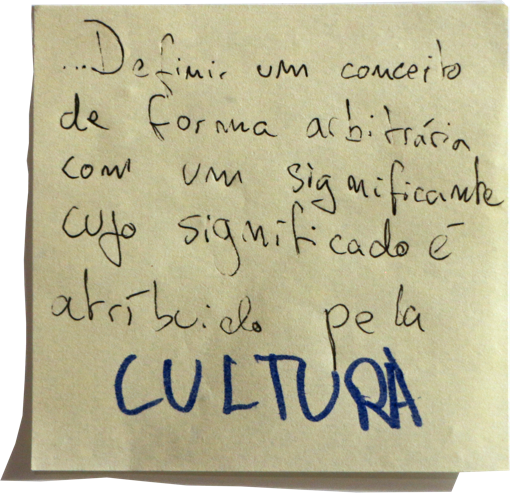 ...Definir um conceito
de forma arbitrária
com um significante
cujo significado é
atríbuido pela
CULTURA